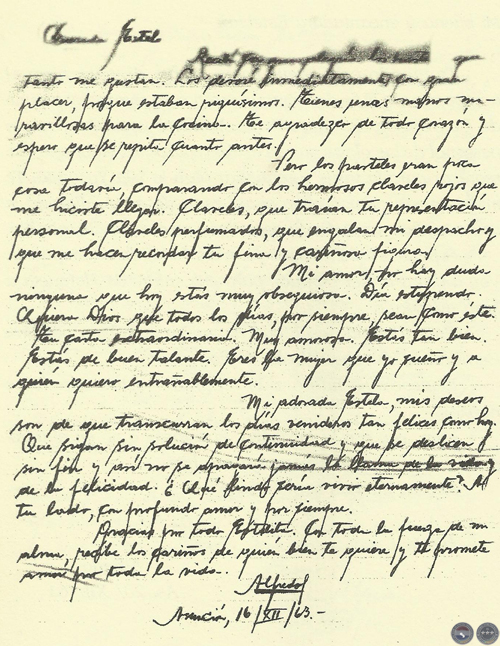 Querida Estel
Recibí los que
tanto me gustan. Los devoré inmediatamente con gran
placer, porque estaban riquísimos. Tienes unas manos ma-
ravillosas para la cocina. Te agradezco de todo corazón y
espero que se repita cuanto antes.
Pero los pasteles eran poca
cosa todavía, comparando con los hermosos claveles rojos que
me hiciste llegar. Claveles, que traían tu representación
personal. Claveles perfumados, que engalan mi despacho y
que me hacen recordar tu fina y cariñosa figura.
Mi amor, no hay duda
ninguna que hoy estás muy obsequiosa. Día estupendo.
Quiera Dios que todos los días, por siempre sean como este.
Tu carta extraordinaria. Muy amorosa. Estás tan bien.
Estás de buen talante. Eres la mujer que yo sueño y a
quien quiero entrañablemente.
Mi adorada Estela, mis deseos
son de que transcurran los días venideros tan felices como hoy.
Que sigan sin solución de continuidad y que se deslicen
sin fin y así no se apagará jamás la llama de la vida y
de la felicidad. ¿Qué lindo sería vivir eternamente? A
tu lado, con profundo amor y por siempre.
Gracias por todo Estelita. Con toda la fuerza de mi
alma, recibe los cariños de quien bien te quiere y te promete
amor por toda la vida.
Alfredo
Asunción, 16/XII/63.-